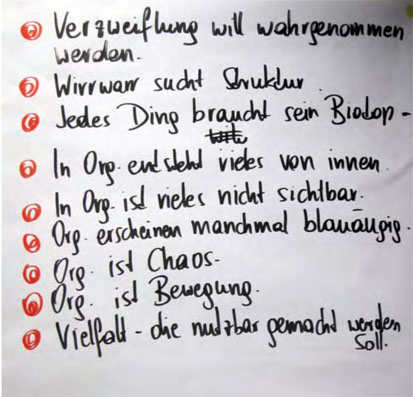 Verzweiflung will wahrgenommen
werden.
Wirrwarr sucht Struktur.
Jedes Ding braucht sein Biotop -
In Org. entsteht vieles von innen.
In Org. ist vieles nicht sichtbar.
Org. erscheinen manchmal blauäugig.
Org. ist Chaos.
Org. ist Bewegung.
Vielfalt - die nutzbar gemacht werden
soll.